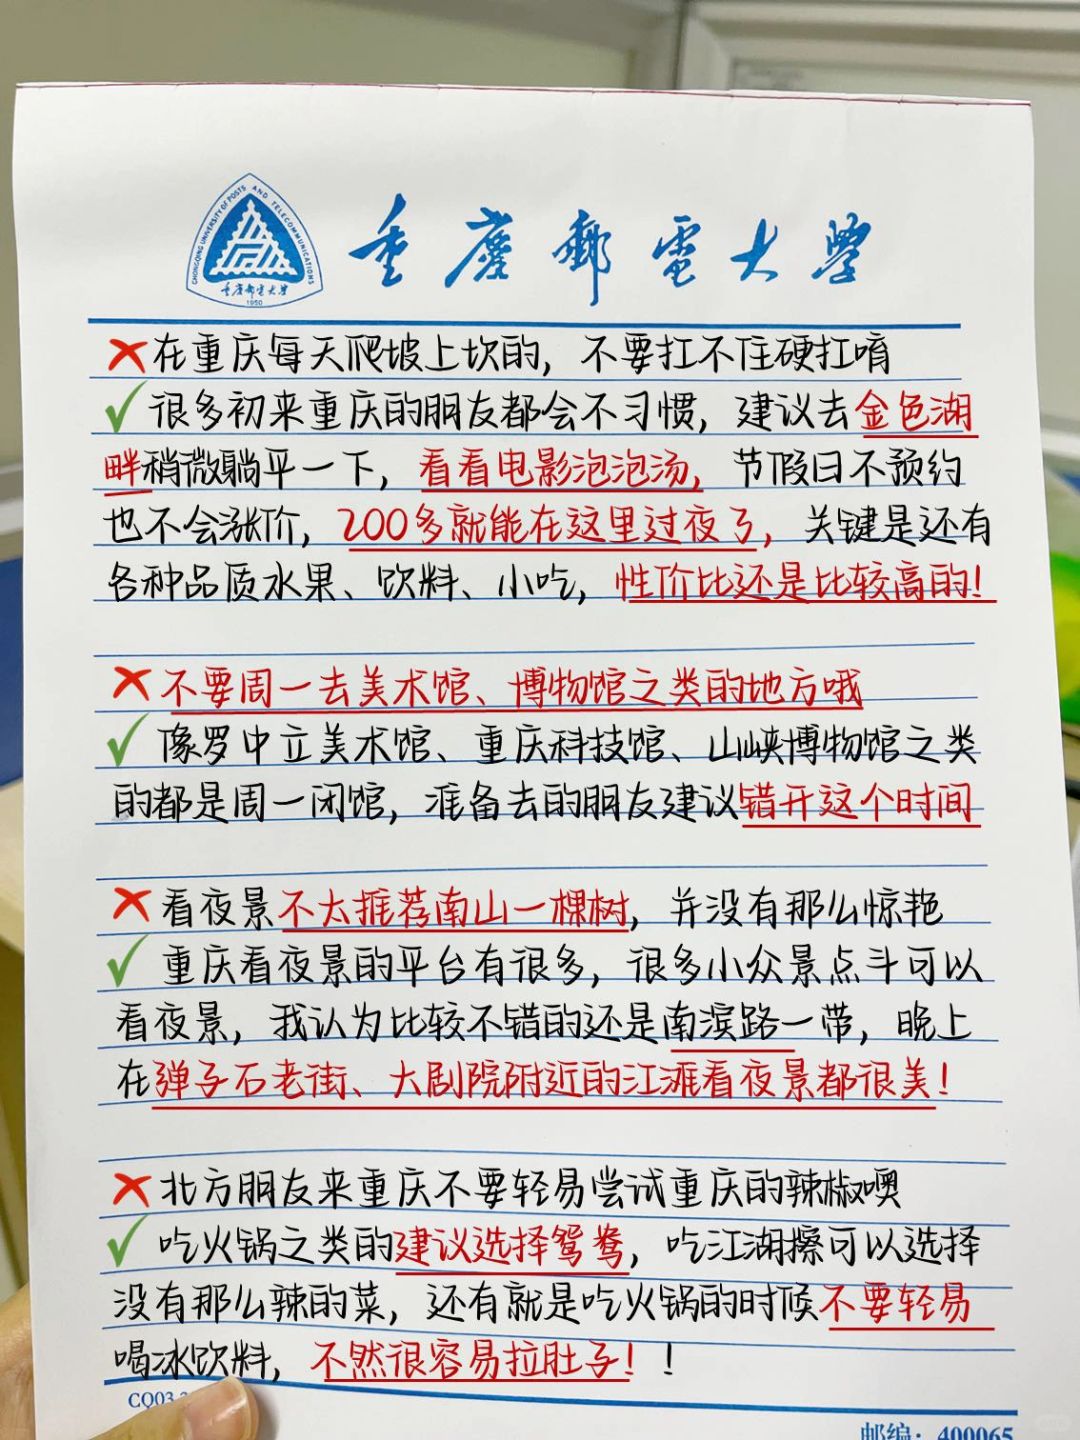 CHONGQING UNIVERSITY OF POSTS AND TELECOMMUNICATIONS
重庆邮电大学
1950
重慶郵電大學
❌在重庆每天爬坡上坎的，不要扛不住硬扛唷
✓很多初来重庆的朋友都会不习惯，建议去金色湖
畔稍微躺平一下，看看电影泡泡汤，节假日不预约
也不会涨价，200多就能在这里过夜了，关键是还有
各种品质水果、饮料、小吃，性价比还是比较高的！
❌不要周一去美术馆、博物馆之类的地方哦
✓像罗中立美术馆、重庆科技馆、山峡博物馆之类
的都是周一闭馆，准备去的朋友建议错开这个时间
❌看夜景不太推荐南山一棵树，并没有那么惊艳
✓重庆看夜景的平台有很多，很多小众景点斗可以
看夜景，我认为比较不错的还是南滨路一带，晚上
在弹子石老街、大剧院附近的江滩看夜景都很美！
❌北方朋友来重庆不要轻易尝试重庆的辣椒噢
✓吃火锅之类的建议选择鸳鸯，吃江湖擦可以选择
没有那么辣的菜，还有就是吃火锅的时候不要轻易
喝冰饮料，不然很容易拉肚子！！
CQ03.
邮编：400065